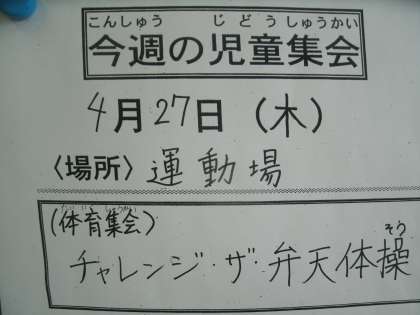 こんしゅう じどうしゅうかい
今週の児童集会
4月27日（木）
〈場所〉運動場
たいいくしゅうかい
（体育集会）
そう
チャレンジ・ザ・弁天体操